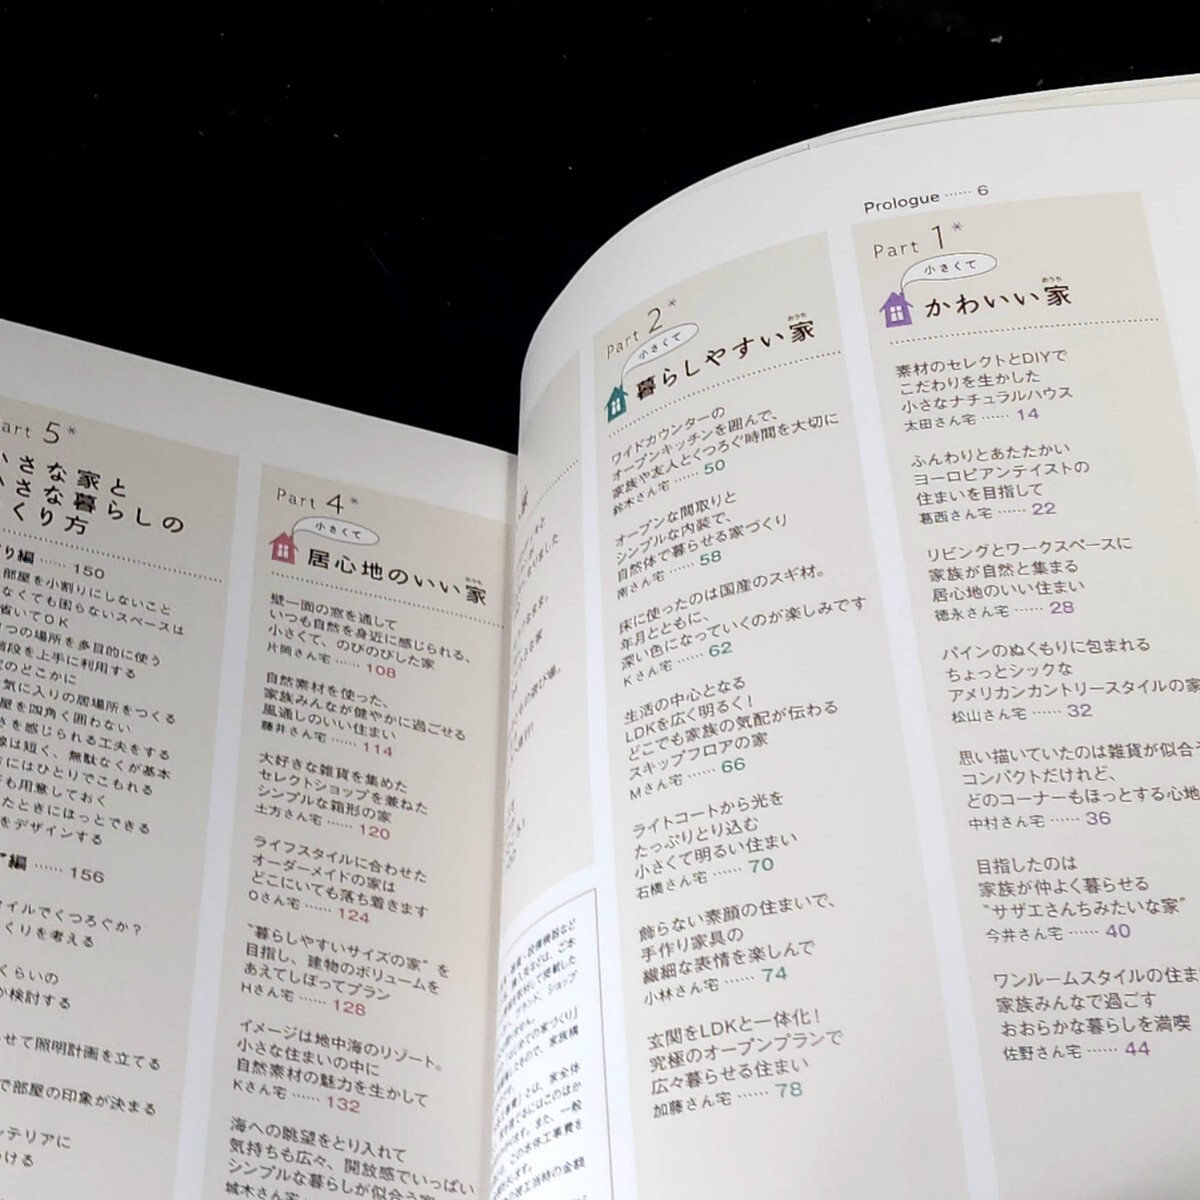 Prologue …… 6
Part 1*
小さくて
かわいい家
おうち
素材のセレクトとDIYで
こだわりを生かした
小さなナチュラルハウス
太田さん宅 …… 14
ふんわりとあたたかい
ヨーロピアンテイストの
住まいを目指して
葛西さん宅 …… 22
リビングとワークスペースに
家族が自然と集まる
居心地のいい住まい
徳永さん宅 …… 28
パインのぬくもりに包まれる
ちょっとシックな
アメリカンカントリースタイルの家
松山さん宅 …… 32
思い描いていたのは雑貨が似合う
コンパクトだけれど、
どのコーナーもほっとする心地
中村さん宅 …… 36
目指したのは
家族が仲よく暮らせる
“サザエさんちみたいな家”
今井さん宅 …… 40
ワンルームスタイルの住ま
家族みんなで過ごす
おおらかな暮らしを満喫
佐野さん宅 …… 44
Part 2*
小さくて
暮らしやすい家
おうち
ワイドカウンターの
オープンキッチンを囲んで、
家族や友人とくつろぐ時間を大切に
鈴木さん宅 …… 50
オープンな間取りと
シンプルな内装で、
自然体で暮らせる家づくり
南さん宅 …… 58
床に使ったのは国産のスギ材。
年月とともに、
深い色になっていくのが楽しみです
Kさん宅 …… 62
生活の中心となる
LDKを広く明るく!
どこでも家族の気配が伝わる
スキップフロアの家
Mさん宅 …… 66
ライトコートから光を
たっぷりとり込む
小さくて明るい住まい
石橋さん宅 …… 70
飾らない素顔の住まいで、
手作り家具の
繊細な表情を楽しんで
小林さん宅 …… 74
玄関をLDKと一体化!
究極のオープンプランで
広々暮らせる住まい
加藤さん宅 …… 78
Part 4*
小さくて
居心地のいい家
おうち
壁一面の窓を通して
いつも自然を身近に感じられる、
小さくて、のびのびした家
片岡さん宅 …… 108
自然素材を使った、
家族みんなが健やかに過ごせる
風通しのいい住まい
藤井さん宅 …… 114
大好きな雑貨を集めた
セレクトショップを兼ねた
シンプルな箱形の家
土方さん宅 …… 120
ライフスタイルに合わせた
オーダーメイドの家は
どこにいても落ち着きます
Oさん宅 …… 124
“暮らしやすいサイズの家”を
目指し、建物のボリュームを
あえてしぼってプラン
Hさん宅 …… 128
イメージは地中海のリゾート。
小さな住まいの中に
自然素材の魅力を生かして
Kさん宅 …… 132
海への眺望をとり入れて
気持ちも広々、開放感でいっぱい
シンプルな暮らしが似合う家
城木さん宅
art 5*
さな家と
さな暮らしの
くり方
り編 …… 150
部屋を小割りにしないこと
なくても困らないスペースは
省いてOK
1つの場所を多目的に使う
階段を上手に利用する
のどこかに
気に入りの居場所をつくる
屋を四角く囲わない
さを感じられる工夫をする
線は短く、無駄なくが基本
にはひとりでこもれる
も用意しておく
たときにほっとできる
をデザインする
”編 …… 156
イルでくつろぐか?
くりを考える
くらいの
か検討する
せて照明計画を立てる
で部屋の印象が決まる
ンテリアに
ける